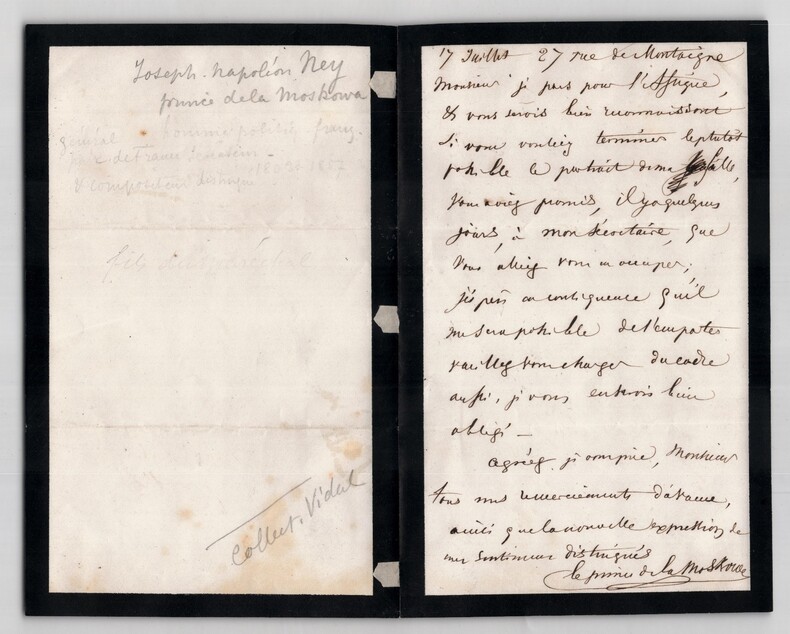 Joseph-Napoléon Ney
prince de la Moskowa
général homme politiq. franç.
pair de France sénateur -
1803 + 1857
& compositeur distingué
fils du maréchal
Collect. Vidal
17 Juillet 27 rue de Montaigne
Monsieur je pars pour l'Affrique,
& vous serois bien reconnoissant
si vous vouliez terminer le plutot
possible le portrait de ma fille,
vous aviez promis, il y a quelques
jours, à mon Sécrétaire, que
vous alliez vous en occuper;
j'espère en conséquence qu'il
me sera possible de l'emporter
veuillez vous charger du cadre
aussi, je vous en serois bien
obligé -
agréez je vous prie, Monsieur
tous mes remerciements d'avance,
ainsi que la nouvelle expression de
mes sentimens distingués
le prince de la Moskowa